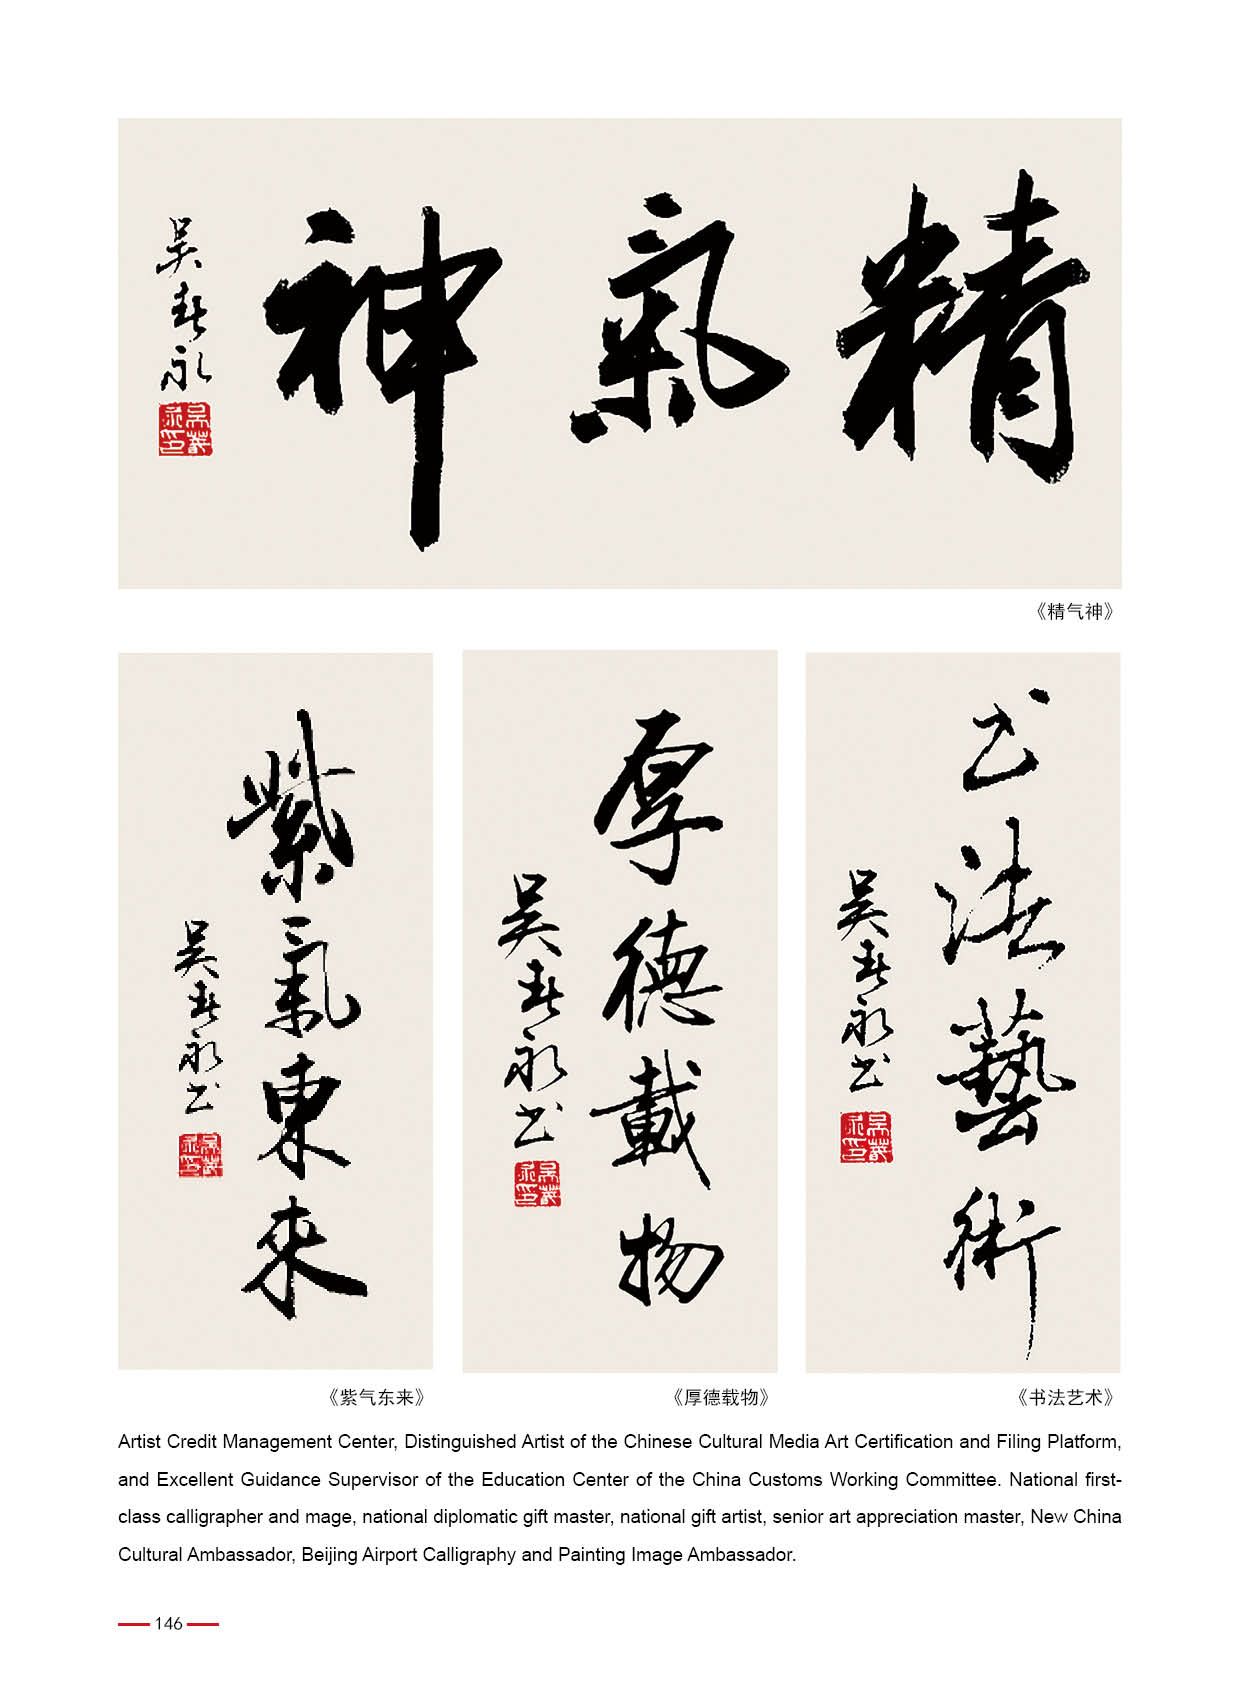 精氣神
吴春永
《精气神》
紫氣東來
吴春永书
《紫气东来》
厚德載物
吴春永书
《厚德载物》
书法藝術
吴春永书
《书法艺术》
Artist Credit Management Center, Distinguished Artist of the Chinese Cultural Media Art Certification and Filing Platform,
and Excellent Guidance Supervisor of the Education Center of the China Customs Working Committee. National first-
class calligrapher and mage, national diplomatic gift master, national gift artist, senior art appreciation master, New China
Cultural Ambassador, Beijing Airport Calligraphy and Painting Image Ambassador.
146